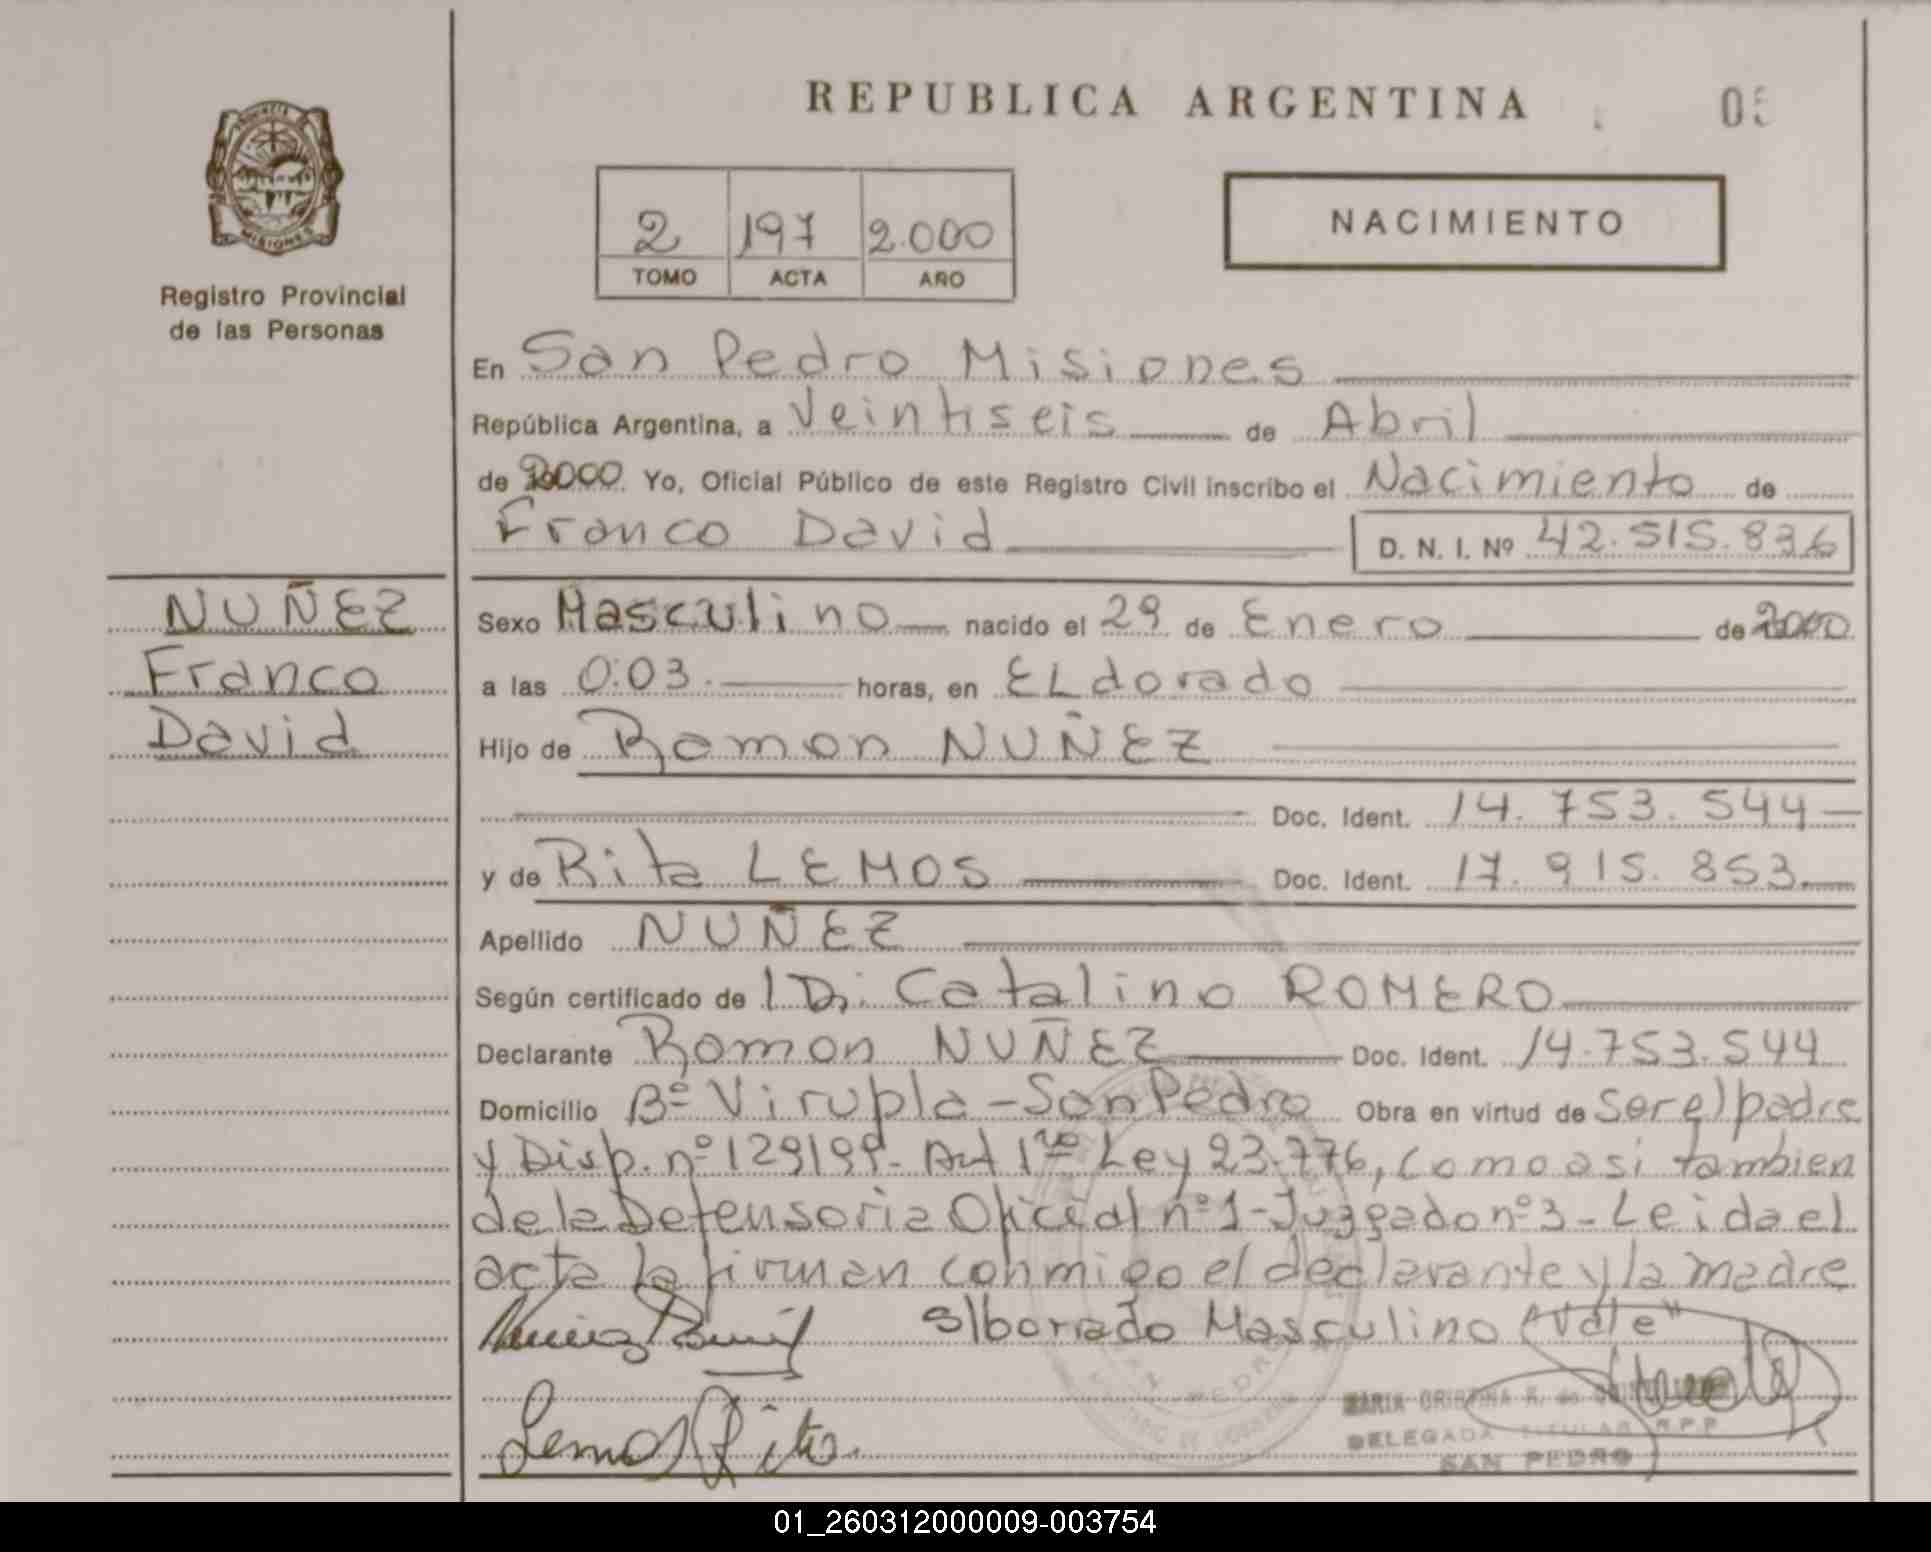 REPUBLICA ARGENTINA
PROVINCIA DE
MISIONES
Registro Provincial
de las Personas
2 197 2.000
TOMO ACTA AÑO
NACIMIENTO
En San Pedro Misiones
República Argentina, a Veintiseis de Abril
de 2000 Yo, Oficial Público de este Registro Civil inscribo el Nacimiento de
Franco David D. N. I. Nº 42.515.836
NUÑEZ
Franco
David
Sexo Masculino nacido el 29 de Enero de 2000
a las 0:03. horas, en ELdorado
Hijo de Ramon NUÑEZ
Doc. Ident. 14.753.544
y de Rita LEMOS Doc. Ident. 17.915.853.
Apellido NUÑEZ
Según certificado de Dr. Catalino ROMERO
Declarante Ramon NUÑEZ Doc. Ident. 14.753.544
Domicilio Bº Virupla - San Pedro Obra en virtud de Ser el padre
y Disp. nº 129/99 - Art 1ro Ley 23.776, como asi tambien
de la Defensoria Oficial nº 1 - Juzgado nº 3 - Leida el
acta la firman conmigo el declarante y la madre
S/borrado Masculino "Vale"
Lemos Rita.
MARIA CRISTINA R. de
DELEGADA TITULAR R.P.P
SAN PEDRO
01_260312000009-003754